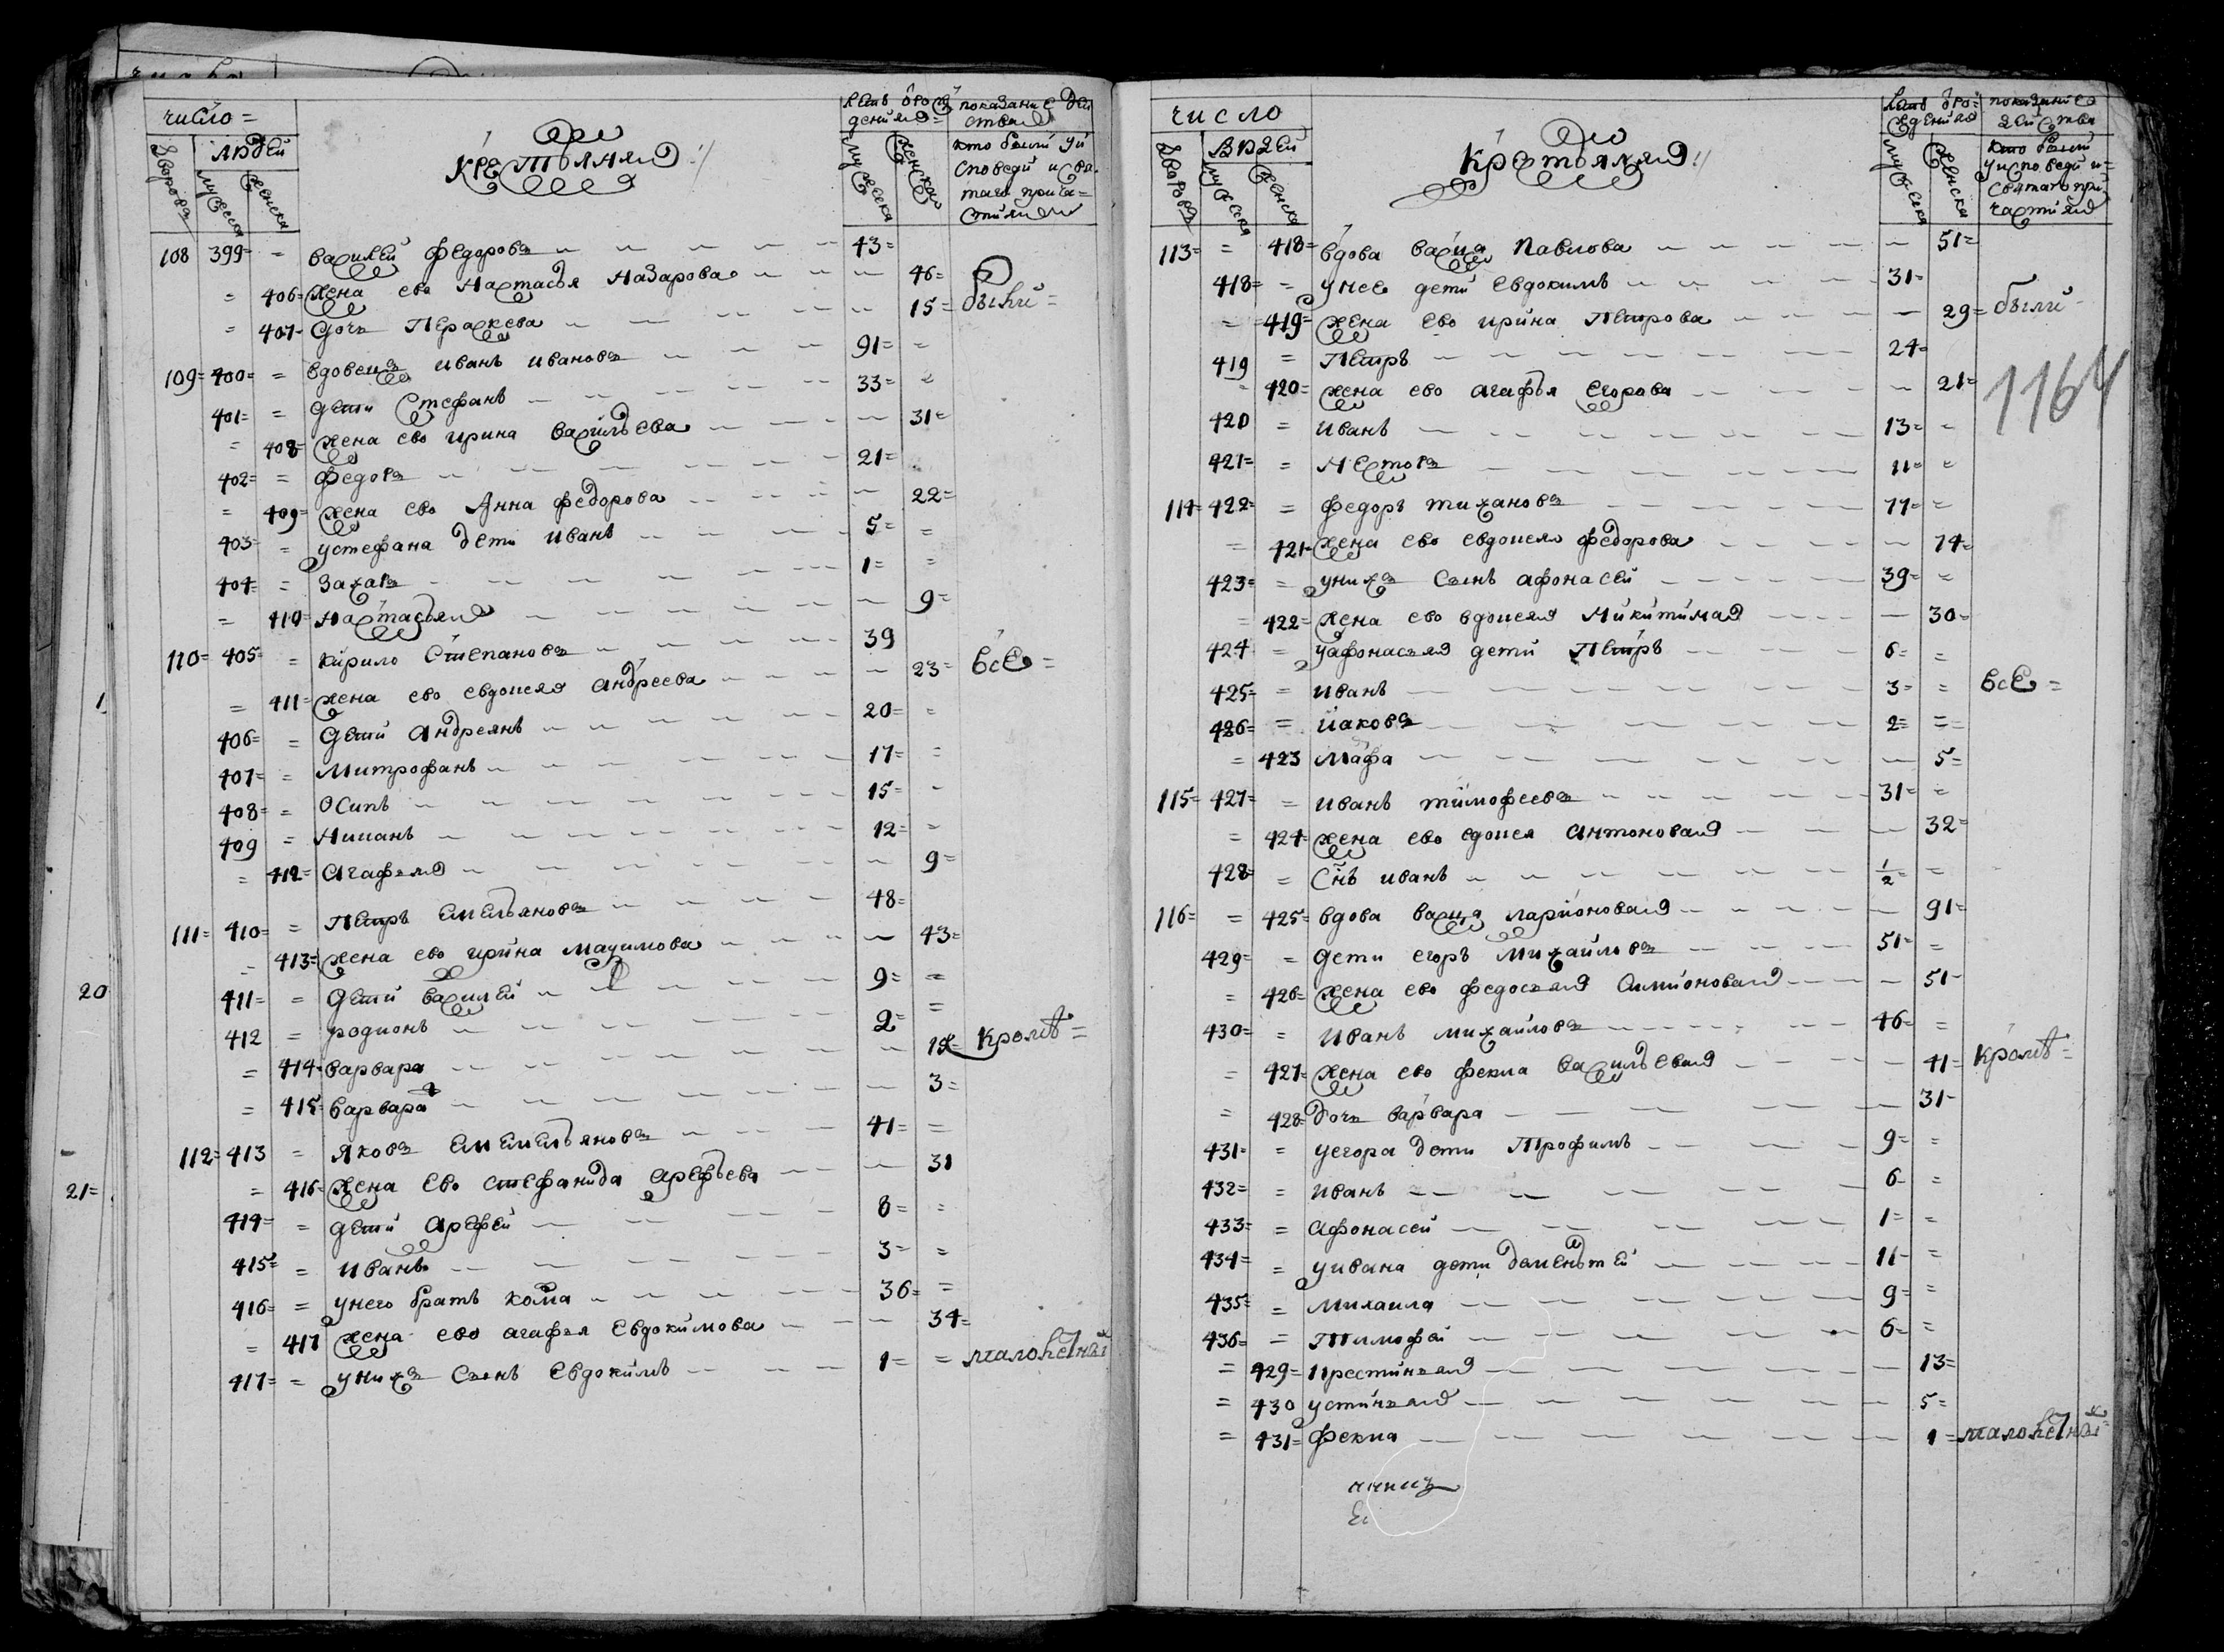 1
20
21=
число=
людей
дворовъ
мужеска
женска
крестьяня
летъ отрож
дения
мужеска
женска
показание дей
ства
кто были уи
споведи и свя
таго прича=
стия
108 399= = василей федоровъ 43=
= 406= жена ево настасья назарова 46=
= 407= дочь Параскева 15= были=
109= 400= = вдовецъ иванъ ивановъ 91= =
401= = дети Стефанъ 33= =
= 408= жена ево ирина васильева 31=
402= = федоръ 21=
= 409= жена ево Анна федорова 22=
403= = устефана дети иванъ 5= =
404= = захаръ 1= =
= 410= настасья 9=
110= 405= = кирило Степановъ 39
= 411= жена ево евдокея андреева 23= все=
406= = дети андреянъ 20= =
407= = митрофанъ 17= =
408= = осипъ 15= =
409 = 12= =
= 412= агафья 9=
111= 410= = Петръ емельяновъ 48=
= 413= жена ево ирина мацимова 43=
411= = дети василей 9= =
412 = родионъ 2= =
= 414= варвара кроме=
= 415= варвара 3=
112= 413 = яковъ емемельяновъ 41= =
= 416= жена ево стефанида арефьева 31
414= = дети арефей 8= =
415= = иванъ 3= =
416= = унего братъ косма 36= =
= 417 жена ево агафья евдокимова 34=
417= = унихъ сынъ евдокимъ 1= = малолетны
число
людей
дворовъ
мужеска
женска
крестьяня
летъ отро=
ждения
мужеска
женска
показание
действа
кто были
уисповеди и=
святаго при=
частия
1164
113= = 418= вдова васса павлова 51=
418= = унее дети евдокимъ 31=
= 419= жена ево ирина петрова 29= были
419 = Петръ 24=
= 420= жена ево агафья егорова 21=
420 = иванъ 13= =
421= = несторъ 11= =
114= 422= = федоръ тихановъ 77= =
= 421= жена ево евдокея федорова 74=
423= = унихъ сынъ афонасей 39= =
= 422= жена ево вдокея никитина 30=
424 = уафонасья дети Петръ 6= =
425= = иванъ 3= = все=
426= = иаковъ 2= =
= 423 мафа 5=
115= 427= = иванъ тимофеевъ 31= =
= 424= жена ево вдокея антонова 32=
428= = снъ иванъ 1/2= =
116= = 425= вдова васса ларионовая 91=
429= = дети егоръ михайловъ 51= =
= 426= жена ево федосья симионовая 51=
430= = иванъ михайловъ 46= =
= 427= жена ево фекла васильевая 41= кроме=
= 428= дочь варвара 31=
431= = уегора дети Трофимъ 9= =
432= = иванъ 6= =
433= = афонасей 1= =
434= = уивана дети 11= =
435= = михаила 9= =
436= = Тимофей 6= =
= 429= кристинья 13=
= 430 устинья 5=
= 431= фекла 1= малолетны